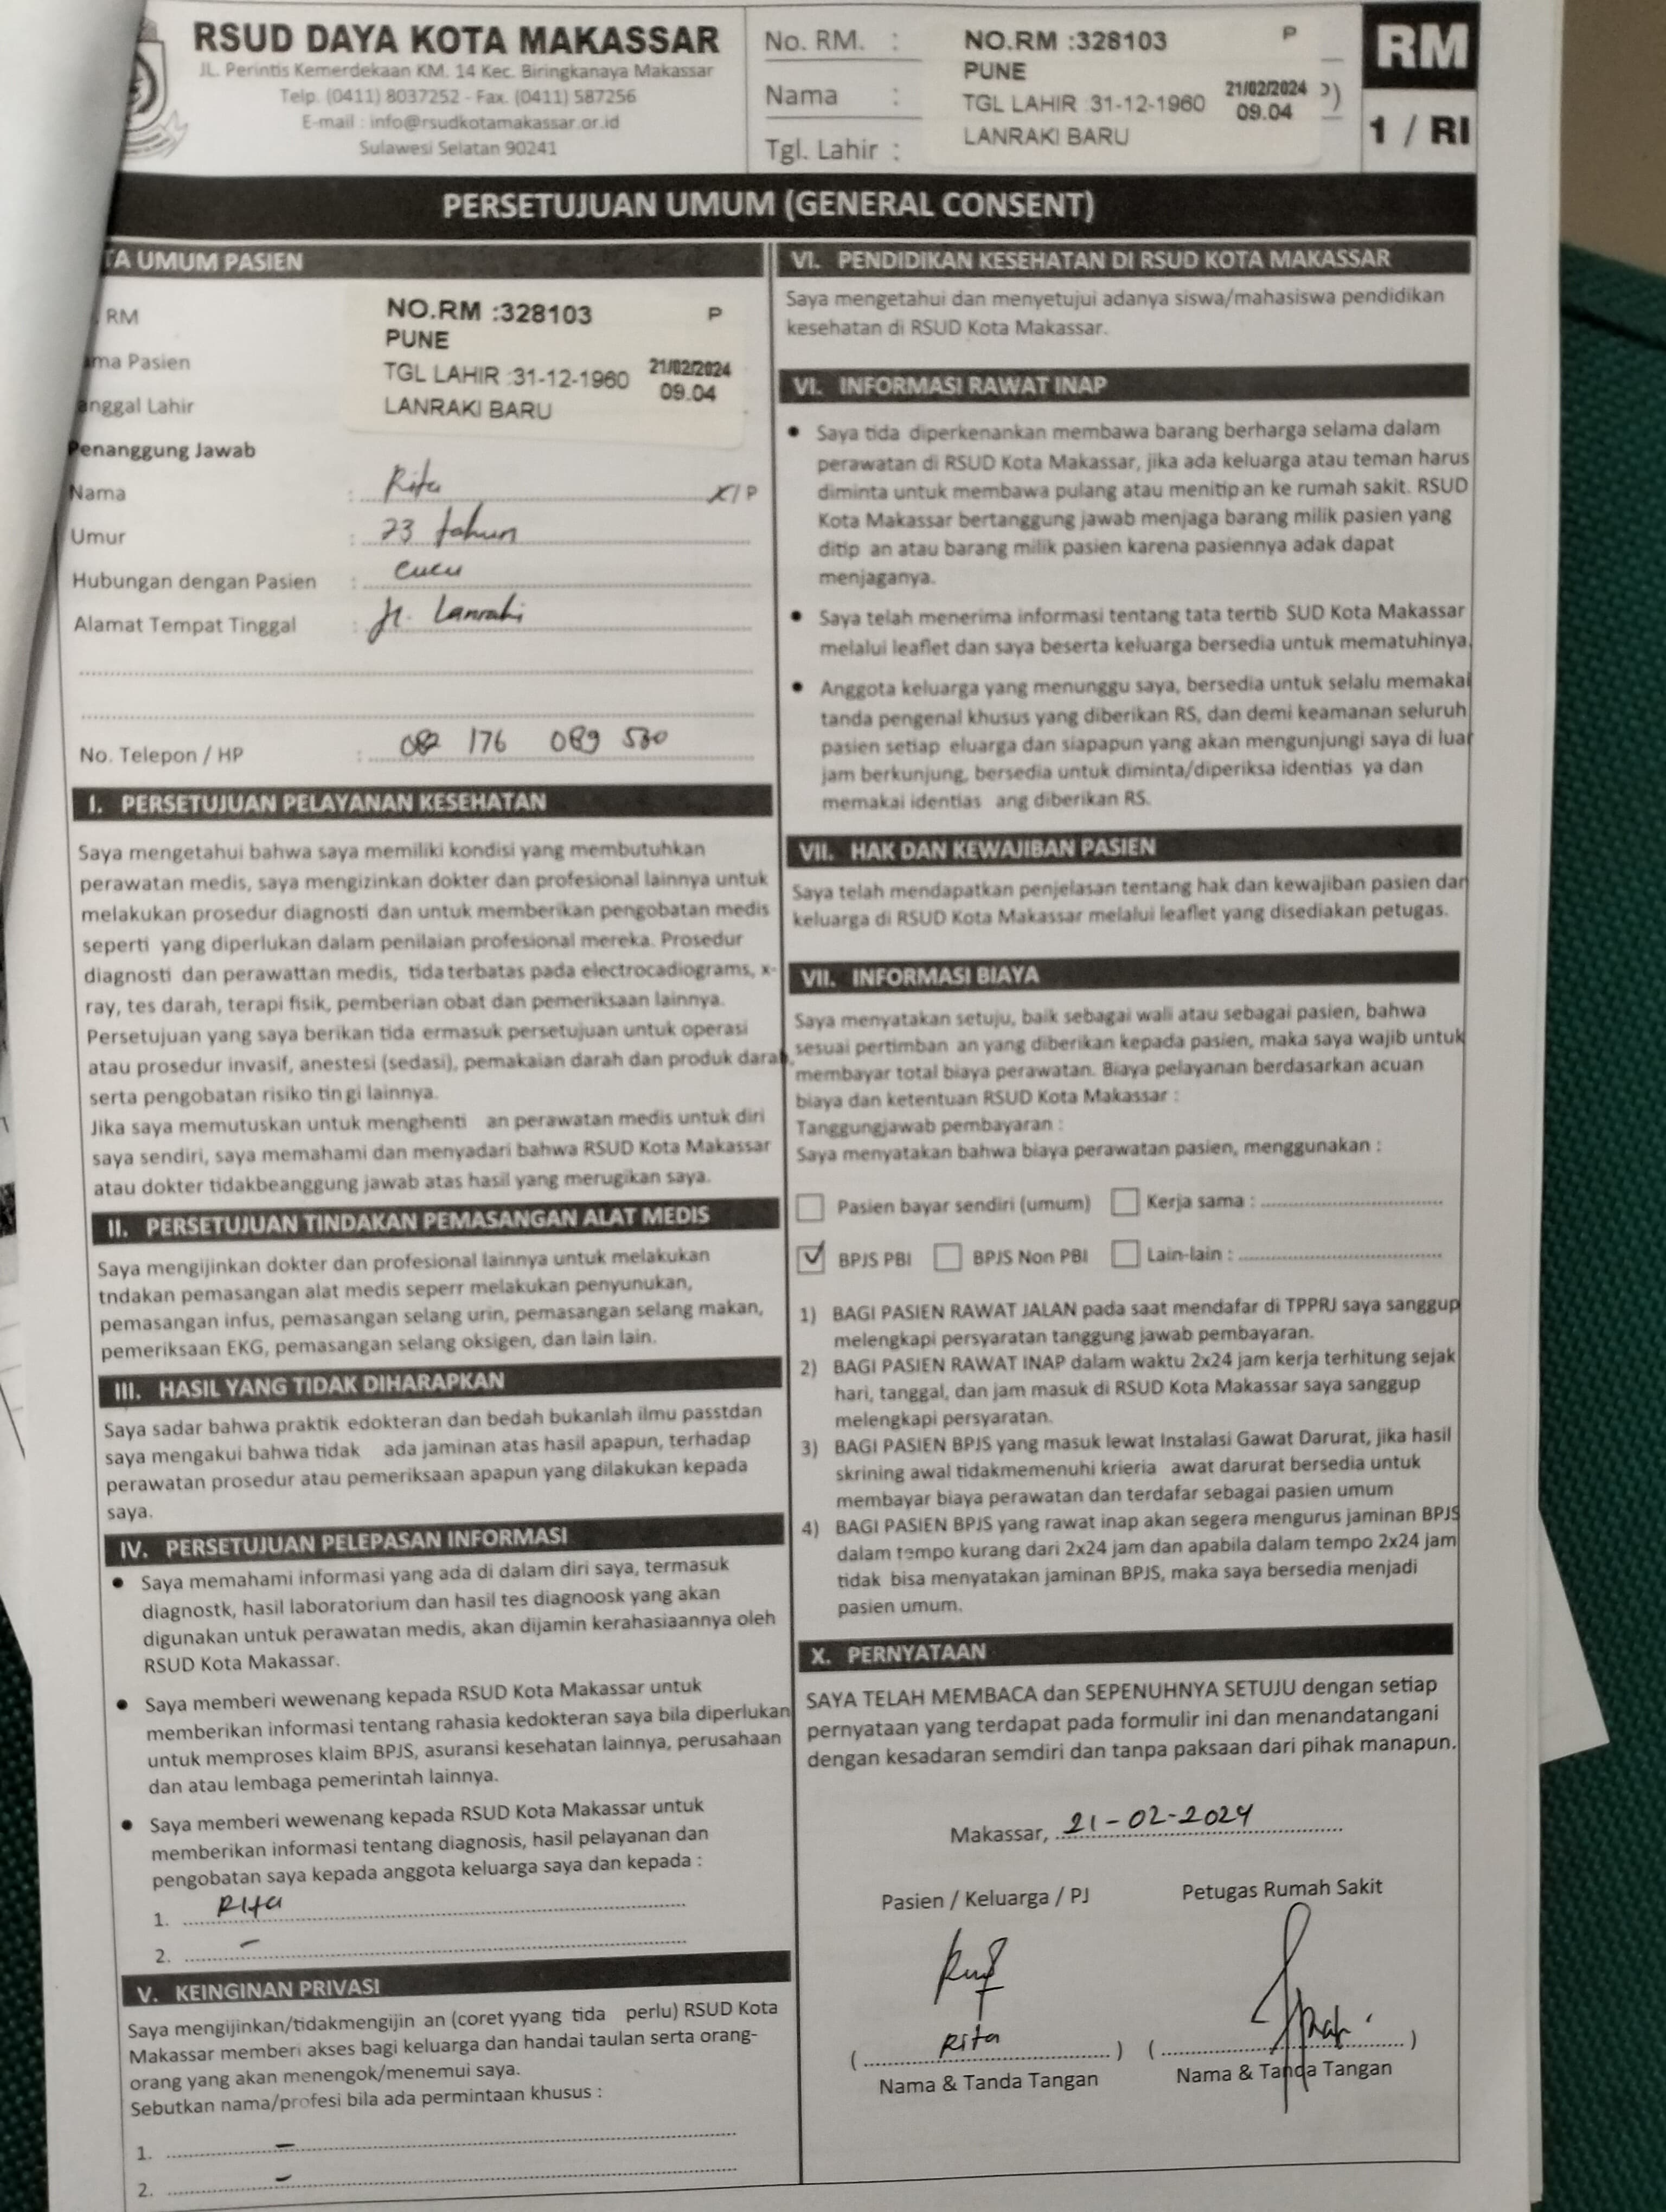 RSUD DAYA KOTA MAKASSAR
JL. Perintis Kemerdekaan KM. 14 Kec. Biringkanaya Makassar
Telp. (0411) 8037252 - Fax. (0411) 587256
E-mail : info@rsudkotamakassar.or.id
Sulawesi Selatan 90241
No. RM. :
Nama :
Tgl. Lahir :
NO.RM :328103 P
PUNE
TGL LAHIR :31-12-1960 21/02/2024
09.04
LANRAKI BARU
RM
1 / RI
PERSETUJUAN UMUM (GENERAL CONSENT)
TA UMUM PASIEN
RM
ma Pasien
anggal Lahir
NO.RM :328103 P
PUNE
TGL LAHIR :31-12-1960 21/02/2024
09.04
LANRAKI BARU
Penanggung Jawab
Nama : Rita L/P
Umur : 23 tahun
Hubungan dengan Pasien : cucu
Alamat Tempat Tinggal : Jl. Lanraki
No. Telepon / HP : 082 176 089 530
I. PERSETUJUAN PELAYANAN KESEHATAN
Saya mengetahui bahwa saya memiliki kondisi yang membutuhkan
perawatan medis, saya mengizinkan dokter dan profesional lainnya untuk
melakukan prosedur diagnosti dan untuk memberikan pengobatan medis
seperti yang diperlukan dalam penilaian profesional mereka. Prosedur
diagnosti dan perawattan medis, tida terbatas pada electrocadiograms, x-
ray, tes darah, terapi fisik, pemberian obat dan pemeriksaan lainnya.
Persetujuan yang saya berikan tida ermasuk persetujuan untuk operasi
atau prosedur invasif, anestesi (sedasi), pemakaian darah dan produk darah,
serta pengobatan risiko tin gi lainnya.
Jika saya memutuskan untuk menghenti an perawatan medis untuk diri
saya sendiri, saya memahami dan menyadari bahwa RSUD Kota Makassar
atau dokter tidakbeanggung jawab atas hasil yang merugikan saya.
II. PERSETUJUAN TINDAKAN PEMASANGAN ALAT MEDIS
Saya mengijinkan dokter dan profesional lainnya untuk melakukan
tndakan pemasangan alat medis seperr melakukan penyunukan,
pemasangan infus, pemasangan selang urin, pemasangan selang makan,
pemeriksaan EKG, pemasangan selang oksigen, dan lain lain.
III. HASIL YANG TIDAK DIHARAPKAN
Saya sadar bahwa praktik edokteran dan bedah bukanlah ilmu passtdan
saya mengakui bahwa tidak ada jaminan atas hasil apapun, terhadap
perawatan prosedur atau pemeriksaan apapun yang dilakukan kepada
saya.
IV. PERSETUJUAN PELEPASAN INFORMASI
• Saya memahami informasi yang ada di dalam diri saya, termasuk
diagnostk, hasil laboratorium dan hasil tes diagnoosk yang akan
digunakan untuk perawatan medis, akan dijamin kerahasiaannya oleh
RSUD Kota Makassar.
• Saya memberi wewenang kepada RSUD Kota Makassar untuk
memberikan informasi tentang rahasia kedokteran saya bila diperlukan
untuk memproses klaim BPJS, asuransi kesehatan lainnya, perusahaan
dan atau lembaga pemerintah lainnya.
• Saya memberi wewenang kepada RSUD Kota Makassar untuk
memberikan informasi tentang diagnosis, hasil pelayanan dan
pengobatan saya kepada anggota keluarga saya dan kepada :
1. Rita
2. -
V. KEINGINAN PRIVASI
Saya mengijinkan/tidakmengijin an (coret yyang tida perlu) RSUD Kota
Makassar memberi akses bagi keluarga dan handai taulan serta orang-
orang yang akan menengok/menemui saya.
Sebutkan nama/profesi bila ada permintaan khusus :
1. -
2. -
VI. PENDIDIKAN KESEHATAN DI RSUD KOTA MAKASSAR
Saya mengetahui dan menyetujui adanya siswa/mahasiswa pendidikan
kesehatan di RSUD Kota Makassar.
VI. INFORMASI RAWAT INAP
• Saya tida diperkenankan membawa barang berharga selama dalam
perawatan di RSUD Kota Makassar, jika ada keluarga atau teman harus
diminta untuk membawa pulang atau menitip an ke rumah sakit. RSUD
Kota Makassar bertanggung jawab menjaga barang milik pasien yang
ditip an atau barang milik pasien karena pasiennya adak dapat
menjaganya.
• Saya telah menerima informasi tentang tata tertib SUD Kota Makassar
melalui leaflet dan saya beserta keluarga bersedia untuk mematuhinya.
• Anggota keluarga yang menunggu saya, bersedia untuk selalu memakai
tanda pengenal khusus yang diberikan RS, dan demi keamanan seluruh
pasien setiap eluarga dan siapapun yang akan mengunjungi saya di luar
jam berkunjung, bersedia untuk diminta/diperiksa identias ya dan
memakai identias ang diberikan RS.
VII. HAK DAN KEWAJIBAN PASIEN
Saya telah mendapatkan penjelasan tentang hak dan kewajiban pasien dan
keluarga di RSUD Kota Makassar melalui leaflet yang disediakan petugas.
VII. INFORMASI BIAYA
Saya menyatakan setuju, baik sebagai wali atau sebagai pasien, bahwa
sesuai pertimban an yang diberikan kepada pasien, maka saya wajib untuk
membayar total biaya perawatan. Biaya pelayanan berdasarkan acuan
biaya dan ketentuan RSUD Kota Makassar :
Tanggungjawab pembayaran :
Saya menyatakan bahwa biaya perawatan pasien, menggunakan :
Pasien bayar sendiri (umum) Kerja sama :
✓ BPJS PBI BPJS Non PBI Lain-lain :
1) BAGI PASIEN RAWAT JALAN pada saat mendafar di TPPRJ saya sanggup
melengkapi persyaratan tanggung jawab pembayaran.
2) BAGI PASIEN RAWAT INAP dalam waktu 2x24 jam kerja terhitung sejak
hari, tanggal, dan jam masuk di RSUD Kota Makassar saya sanggup
melengkapi persyaratan.
3) BAGI PASIEN BPJS yang masuk lewat Instalasi Gawat Darurat, jika hasil
skrining awal tidakmemenuhi krieria awat darurat bersedia untuk
membayar biaya perawatan dan terdafar sebagai pasien umum
4) BAGI PASIEN BPJS yang rawat inap akan segera mengurus jaminan BPJS
dalam tempo kurang dari 2x24 jam dan apabila dalam tempo 2x24 jam
tidak bisa menyatakan jaminan BPJS, maka saya bersedia menjadi
pasien umum.
X. PERNYATAAN
SAYA TELAH MEMBACA dan SEPENUHNYA SETUJU dengan setiap
pernyataan yang terdapat pada formulir ini dan menandatangani
dengan kesadaran semdiri dan tanpa paksaan dari pihak manapun.
Makassar, 21-02-2024
Pasien / Keluarga / PJ Petugas Rumah Sakit
( Rita ) ( )
Nama & Tanda Tangan Nama & Tanda Tangan